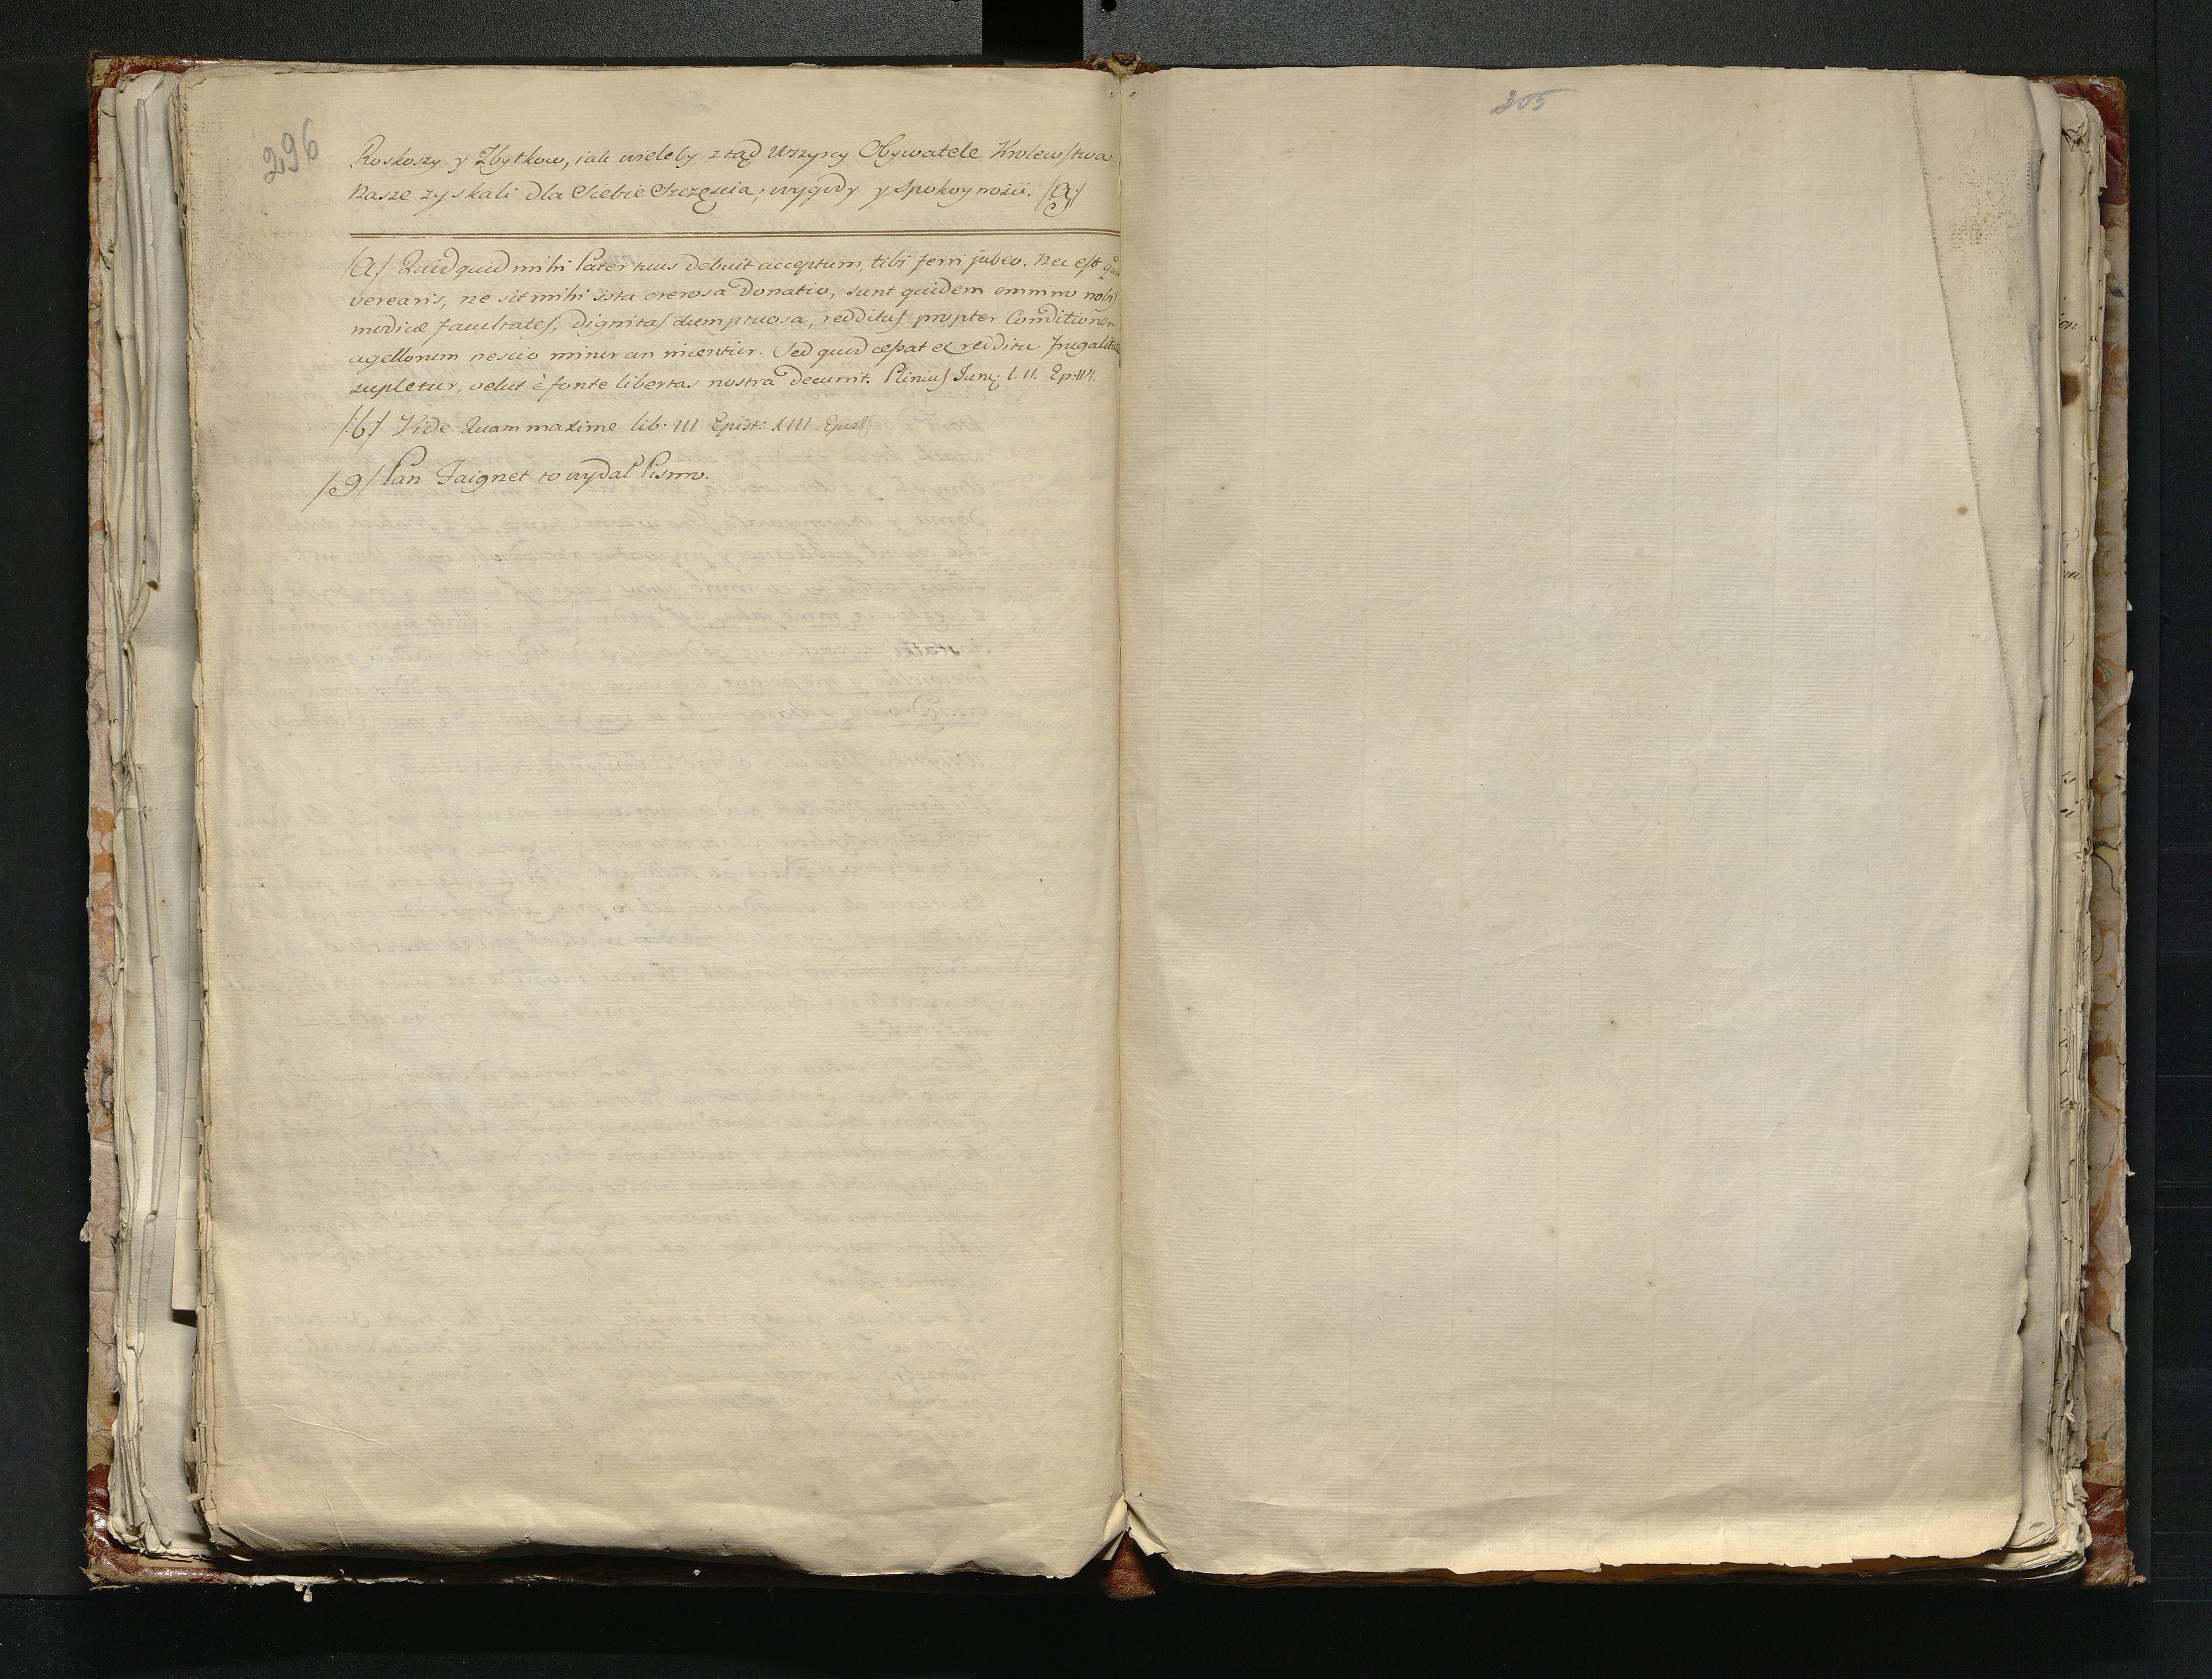 296
Roskoszy y Zbytkow, iak wieleby ztąd Wszyscy Obywatele Krolewstwa
Nasze zyskali dla Siebie Szczęscia, wygody y Spokoynosci. /g/
/a/ Quidquid mihi Pater tuus debuit acceptum, tibi ferri jubeo. Nec est
verearis, ne sit mihi ista onerosa Donatio, sunt quidem omnino nobis
modicæ facultates, Dignitas sumptuosa, redditus propter Conditionem
agellorum nescio minor an incertior. Sed quod cessat ex redditu frugalitate
supletur, velut è fonte libertas nostra Decurrit. Plinius Jun: l. II. Ep:
/:b:/ Vide Quam maxime lib: III Epist: XIII
/g/ Pan Faignet to wydał Pismo.
305